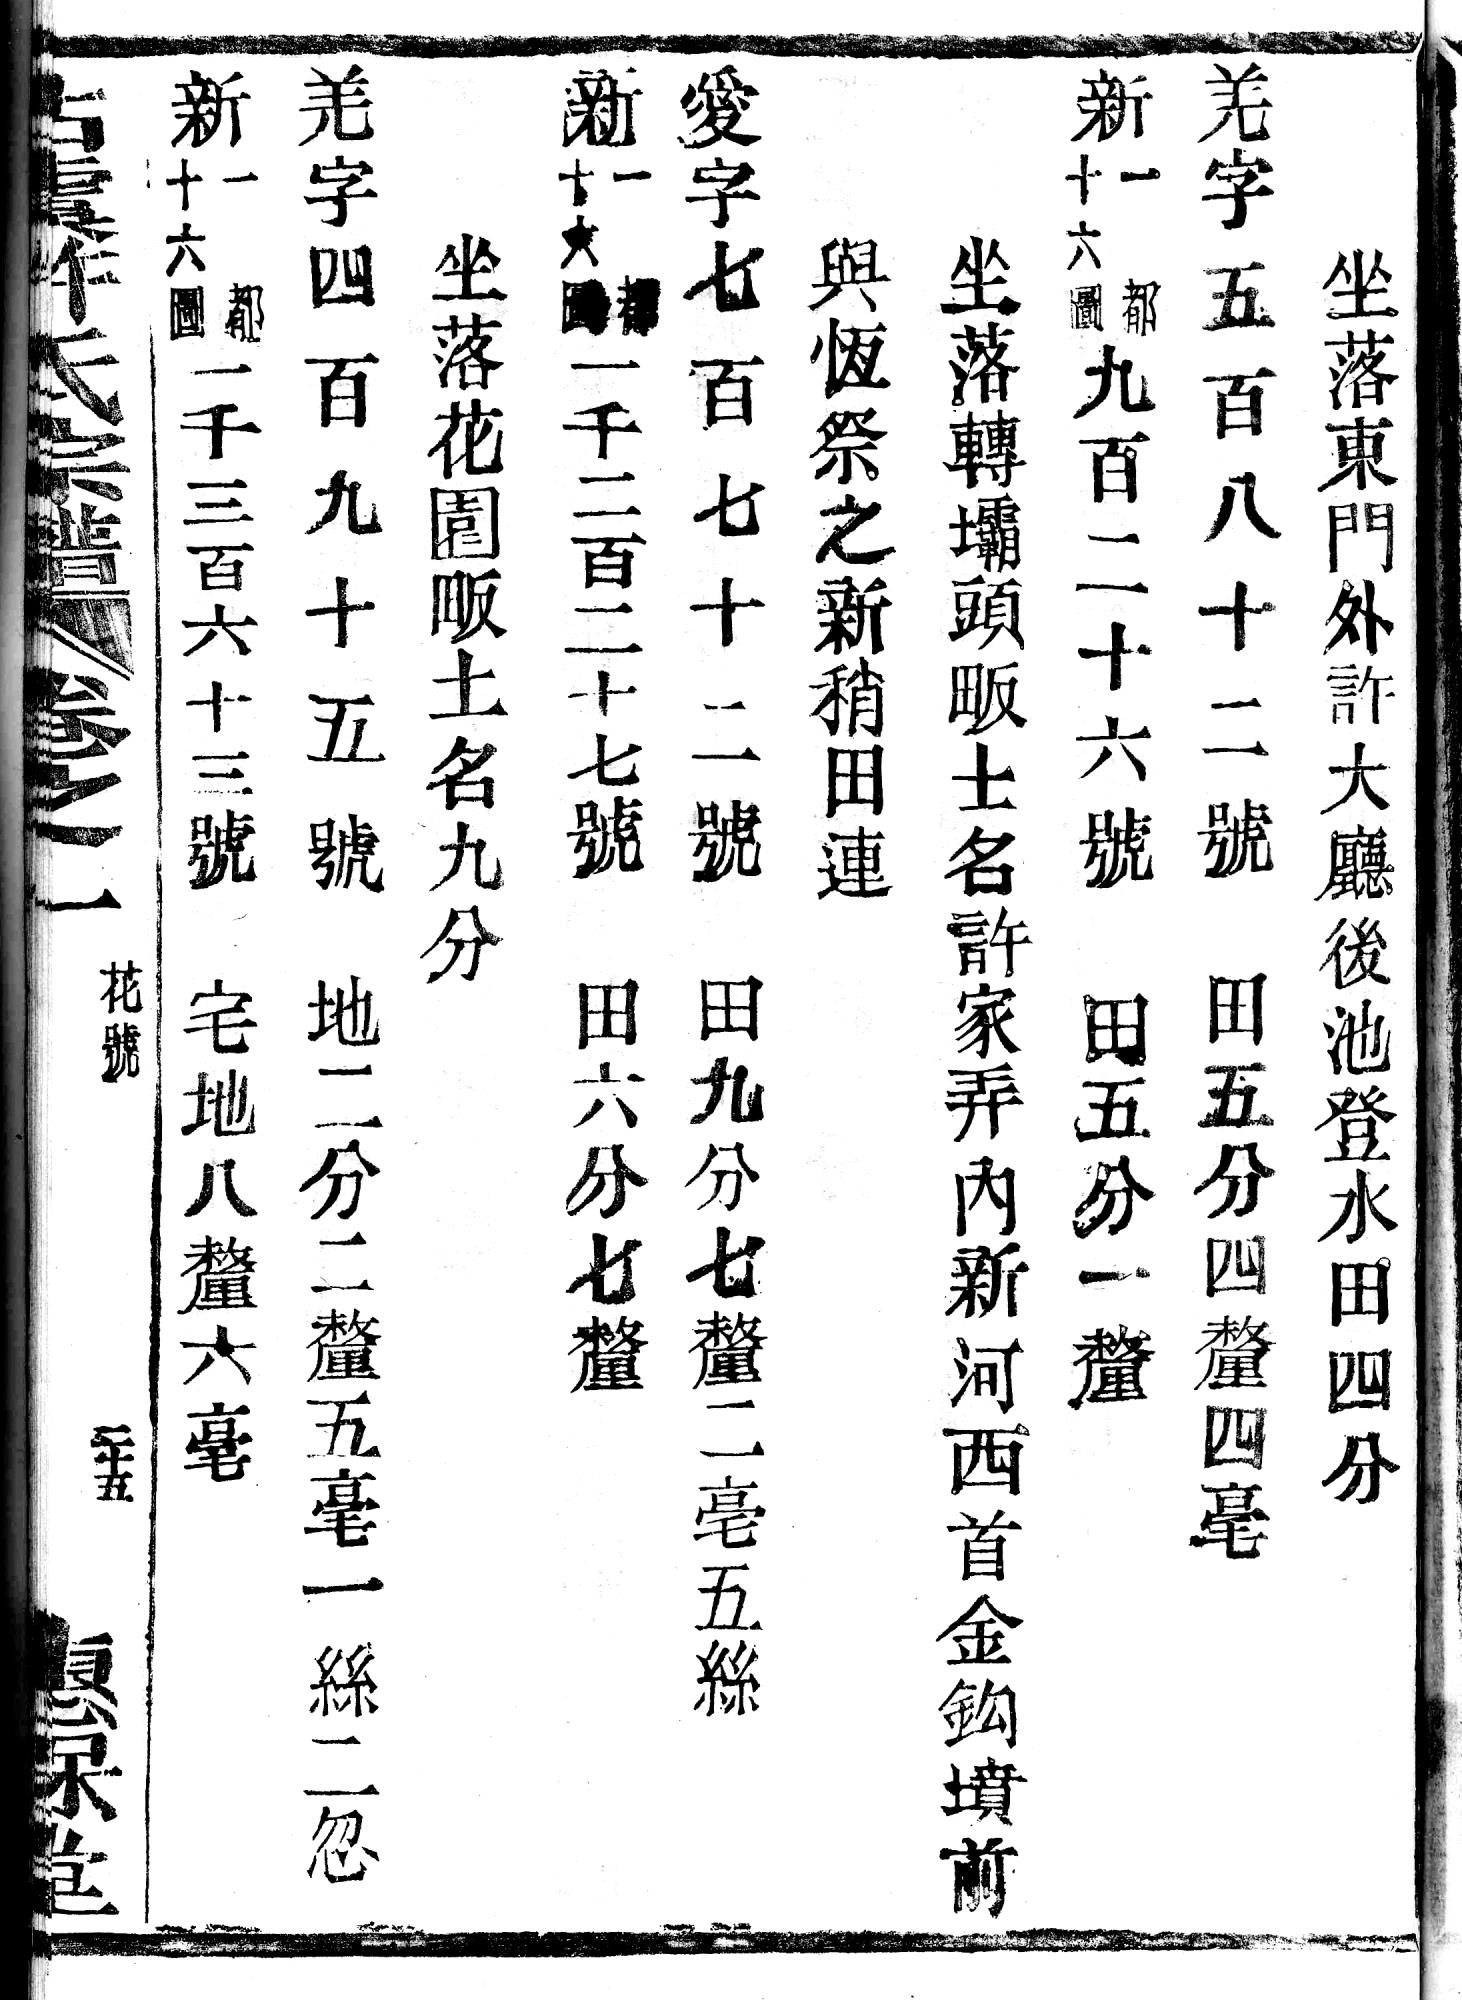 坐落東門外許大廳後池登水田四分
羌字五百八十二號　田五分四釐四毫
新一都十六圖九百二十六號　田五分一釐
坐落轉壩頭畈土名許家弄內新河西首金鈎墳前
與恆祭之新稍田連
愛字七百七十二號　田九分七釐二毫五絲
新一都十六圖一千二百二十七號　田六分七釐
坐落花園畈土名九分
羌字四百九十五號　地二分二釐五毫一絲二忽
新一都十六圖一千三百六十三號　宅地八釐六毫
氏宗譜　卷之一　花號　二十五　堂